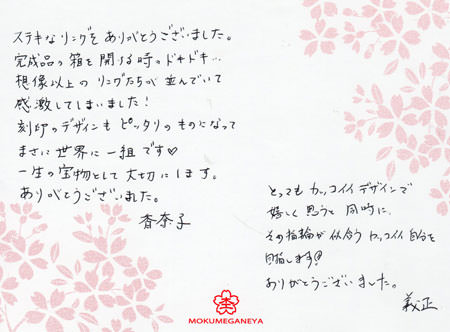 ステキなリングをありがとうございました。
完成品の箱を開ける時のドキドキ…
想像以上のリングたちが並んでいて
感激してしまいました!
刻印のデザインもピッタリのものになって
まさに世界に一組です♡
一生の宝物として大切にします。
ありがとうございました。
香奈子
とってもカッコイイデザインで
嬉しく思うと同時に、
その指輪が似合うカッコイイ自分を
目指します!
ありがとうございました。
義正
MOKUMEGANEYA